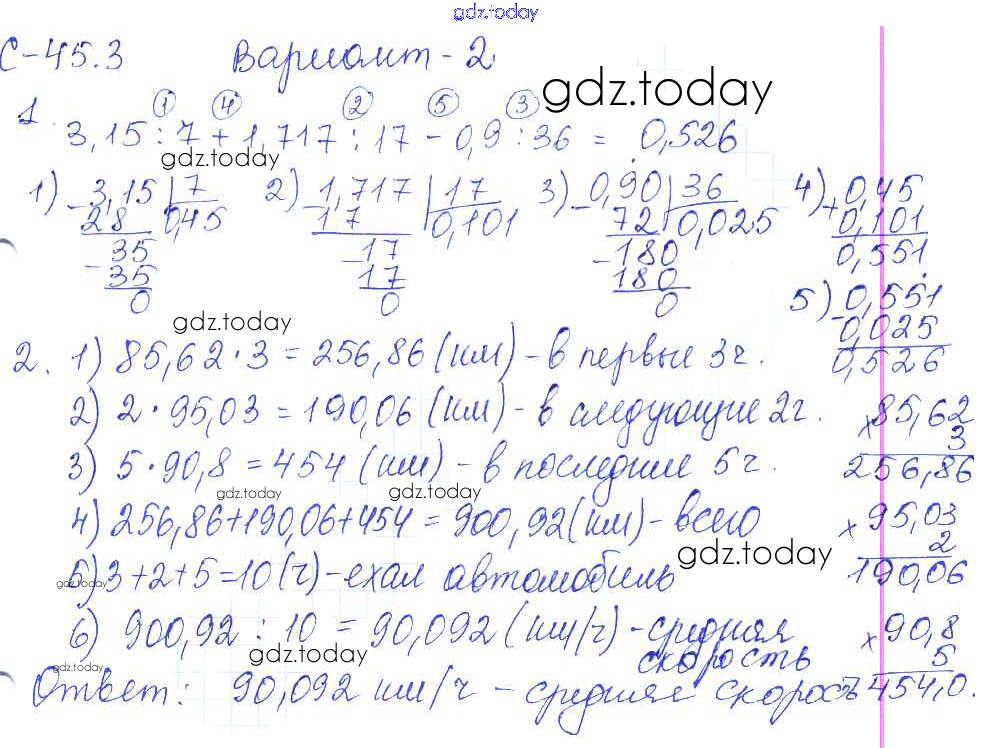 gdz.today
С-45.3 Вариант-2
gdz.today
1. ① ④ ② ⑤ ③
3,15:7+1,717:17-0,9:36=0,526
gdz.today
1) 3,15 | 7 2) 1,717 | 17 3) 0,90 | 36 4) 0,45
- 28 0,45 - 17 0,101 - 72 0,025 + 0,101
35 17 180 0,551
- 35 - 17 - 180
0 0 0
5) 0,551
- 0,025
0,526
gdz.today
2. 1) 85,62·3=256,86(км)-в первые 3ч.
2) 2·95,03=190,06(км)-в следующие 2ч.
× 85,62
3
256,86
3) 5·90,8=454(км)-в последние 5ч.
gdz.today gdz.today
4) 256,86+190,06+454=900,92(км)-всего
× 95,03
2
190,06
gdz.today
5) 3+2+5=10(ч)-ехал автомобиль
gdz.today
6) 900,92:10=90,092(км/ч)-средняя
скорость
× 90,8
5
454,0.
gdz.today
gdz.today
Ответ: 90,092 км/ч - средняя скорость